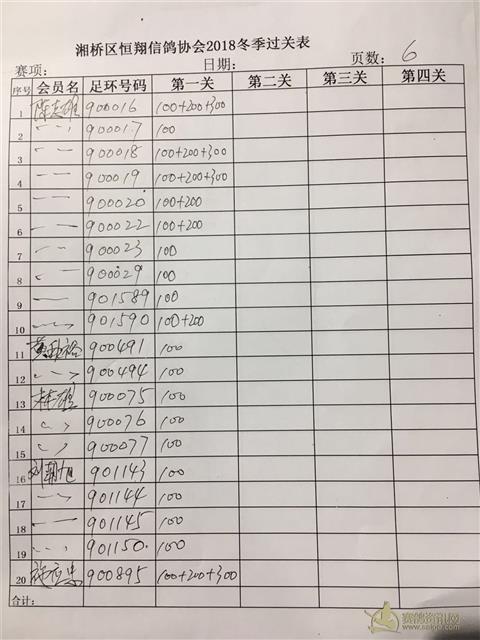 湘桥区恒翔信鸽协会2018冬季过关表
赛项: 日期: 页数: 6
序号 会员名 足环号码 第一关 第二关 第三关 第四关
1 陈志雄 900016 100+200+300
2 900017 100
3 900018 100+200+300
4 900019 100+200+300
5 900020 100+200
6 900022 100+200
7 900023 100
8 900029 100
9 901589 100
10 901590 100+200
11 900491 100
12 900494 100
13 900075 100
14 900076 100
15 900077 100
16 刘朝旭 901143 100
17 901144 100
18 901145 100
19 901150 100
20 900895 100+200+300
合计:
赛鸽资讯网
www.saige.com